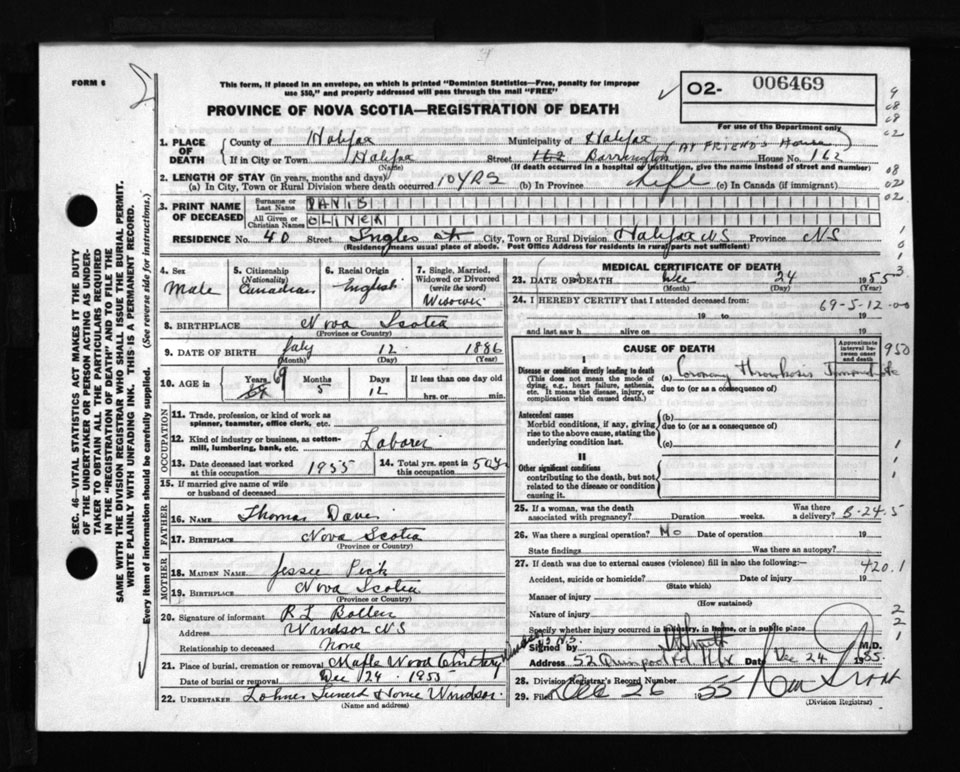 FORM 6
This form, if placed in an envelope, on which is printed "Dominion Statistics—Free, penalty for improper
use $50," and properly addressed will pass through the mail "FREE"
PROVINCE OF NOVA SCOTIA—REGISTRATION OF DEATH
O2- 006469
For use of the Department only
1. PLACE OF DEATH
County of Halifax Municipality of Halifax (AT FRIEND'S House)
If in City or Town Halifax Street 162 Barrington House No. 162
(Name) (If death occurred in a hospital or institution, give the name instead of street and number)
2. LENGTH OF STAY (in years, months and days)
(a) In City, Town or Rural Division where death occurred 10 YRS (b) In Province Life (c) In Canada (if immigrant)
3. PRINT NAME OF DECEASED
Surname or Last Name DAVIS
All Given or Christian Names OLIVER
RESIDENCE No. 40 Street Ingles st City, Town or Rural Division Halifax NS Province NS
(Residence means usual place of abode. Post Office Address for residents in rural parts not sufficient)
4. Sex
Male
5. Citizenship
(Nationality)
Canadian
6. Racial Origin
English
7. Single, Married, Widowed or Divorced
(write the word)
Widower
8. BIRTHPLACE Nova Scotia
(Province or Country)
9. DATE OF BIRTH July 12 1886
(Month) (Day) (Year)
10. AGE in
Years 69 Months 5 Days 12
If less than one day old
hrs. or min.
OCCUPATION
11. Trade, profession, or kind of work as
spinner, teamster, office clerk, etc.
12. Kind of industry or business, as cotton-
mill, lumbering, bank, etc. Laborer
13. Date deceased last worked
at this occupation 1955
14. Total yrs. spent in
this occupation 50 yrs
15. If married give name of wife
or husband of deceased
FATHER
16. NAME Thomas Davis
17. BIRTHPLACE Nova Scotia
(Province or Country)
MOTHER
18. MAIDEN NAME Jessie Pick
19. BIRTHPLACE Nova Scotia
(Province or Country)
20. Signature of informant
Address Windsor NS
Relationship to deceased None
21. Place of burial, cremation or removal Maple Wood Cemetery
Date of burial or removal Dec 24 1955
22. UNDERTAKER Lohnes Funeral Home Windsor
(Name and address)
MEDICAL CERTIFICATE OF DEATH
23. DATE OF DEATH Dec 24 1955
(Month) (Day)
24. I HEREBY CERTIFY that I attended deceased from:
69-5-12-00
19 to 19
and last saw h alive on 19
CAUSE OF DEATH
Approximate interval between onset and death
I
Disease or condition directly leading to death
(This does not mean the mode of
dying, e.g., heart failure, asthenia,
etc. It means the disease, injury, or
complication which caused death.)
(a) Coronary Thrombosis Immediate
due to (or as a consequence of)
Antecedent causes
Morbid conditions, if any, giving
rise to the above cause, stating the
underlying condition last.
(b)
due to (or as a consequence of)
(c)
II
Other significant conditions
contributing to the death, but not
related to the disease or condition
causing it.
25. If a woman, was the death
associated with pregnancy? Duration weeks. Was there a delivery? B-24-5
26. Was there a surgical operation? No Date of operation 19
State findings Was there an autopsy?
27. If death was due to external causes (violence) fill in also the following:—
420.1
Accident, suicide or homicide? Date of injury 19
(State which)
Manner of injury
(How sustained)
Nature of injury
Specify whether injury occurred in industry, in home, or in public place
Signed by M.D.
Address 52 Hfx Date Dec 24 1955.
28. Division Registrar's Record Number
29. Filed Dec 26 1955
(Division Registrar)
SEC. 46—VITAL STATISTICS ACT MAKES IT THE DUTY
OF THE UNDERTAKER OR PERSON ACTING AS UNDER-
TAKER TO OBTAIN ALL THE PARTICULARS REQUIRED
IN THE "REGISTRATION OF DEATH" AND TO FILE THE
SAME WITH THE DIVISION REGISTRAR WHO SHALL ISSUE THE BURIAL PERMIT.
WRITE PLAINLY WITH UNFADING INK. THIS IS A PERMANENT RECORD.
Every item of information should be carefully supplied. (See reverse side for instructions.)
9
08
08
02
08
02
02
3
950
1
1
1
1
2
2
1